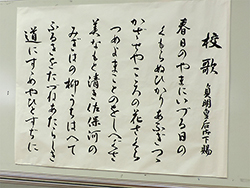 校歌
貞明皇后御下賜
春日のやまにいづる日の
くもらぬひかりあふぎつつ
かざせやこころの花ざくら
つめよまことのをしへぐさ
美なもと清き佐保河の
みぎはの柳うちはへて
ふるきをたづねあたらしき
道にすすめやひとすぢに